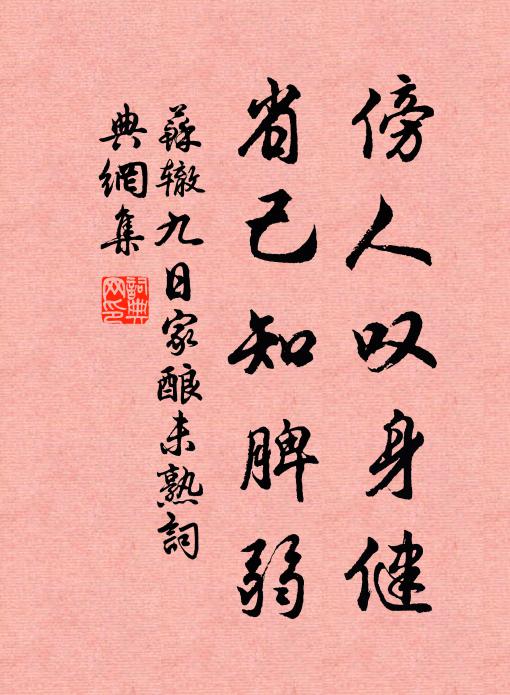 傍人叹身健
省己知脾弱
蘇辙九日家酿未熟詞
典網集
詞典
网印